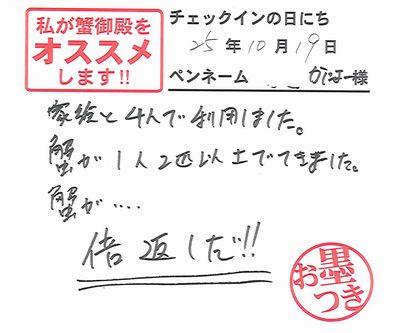 私が蟹御殿を
オススメ
します!!
チェックインの日にち
25年10月19日
ペンネーム かにょー様
家絵と4人で利用しました。
蟹が1人2匹以上でてきました。
蟹が....
倍返しだ!!
お墨つき